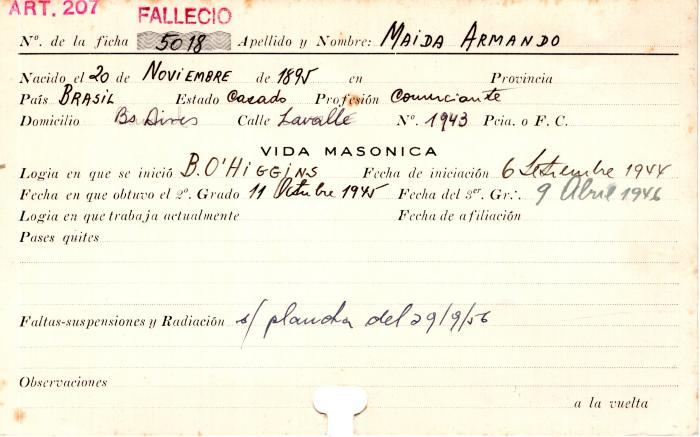 ART. 207
FALLECIO
Nº. de la ficha 5018 Apellido y Nombre: MAIDA ARMANDO
Nacido el 20 de NOVIEMBRE de 1895 en Provincia
País BRASIL Estado Casado Profesión Comerciante
Domicilio Bs Aires Calle Lavalle Nº. 1943 Pcia. o F. C.
VIDA MASONICA
Logia en que se inició B.O'HIGGINS Fecha de iniciación 6 Setiembre 1944
Fecha en que obtuvo el 2º. Grado 11 Octubre 1945 Fecha del 3er. Gr∴. 9 Abril 1946
Logia en que trabaja actualmente Fecha de afiliación
Pases quites
Faltas-suspensiones y Radiación s/ plancha del 29/9/56
Observaciones
a la vuelta